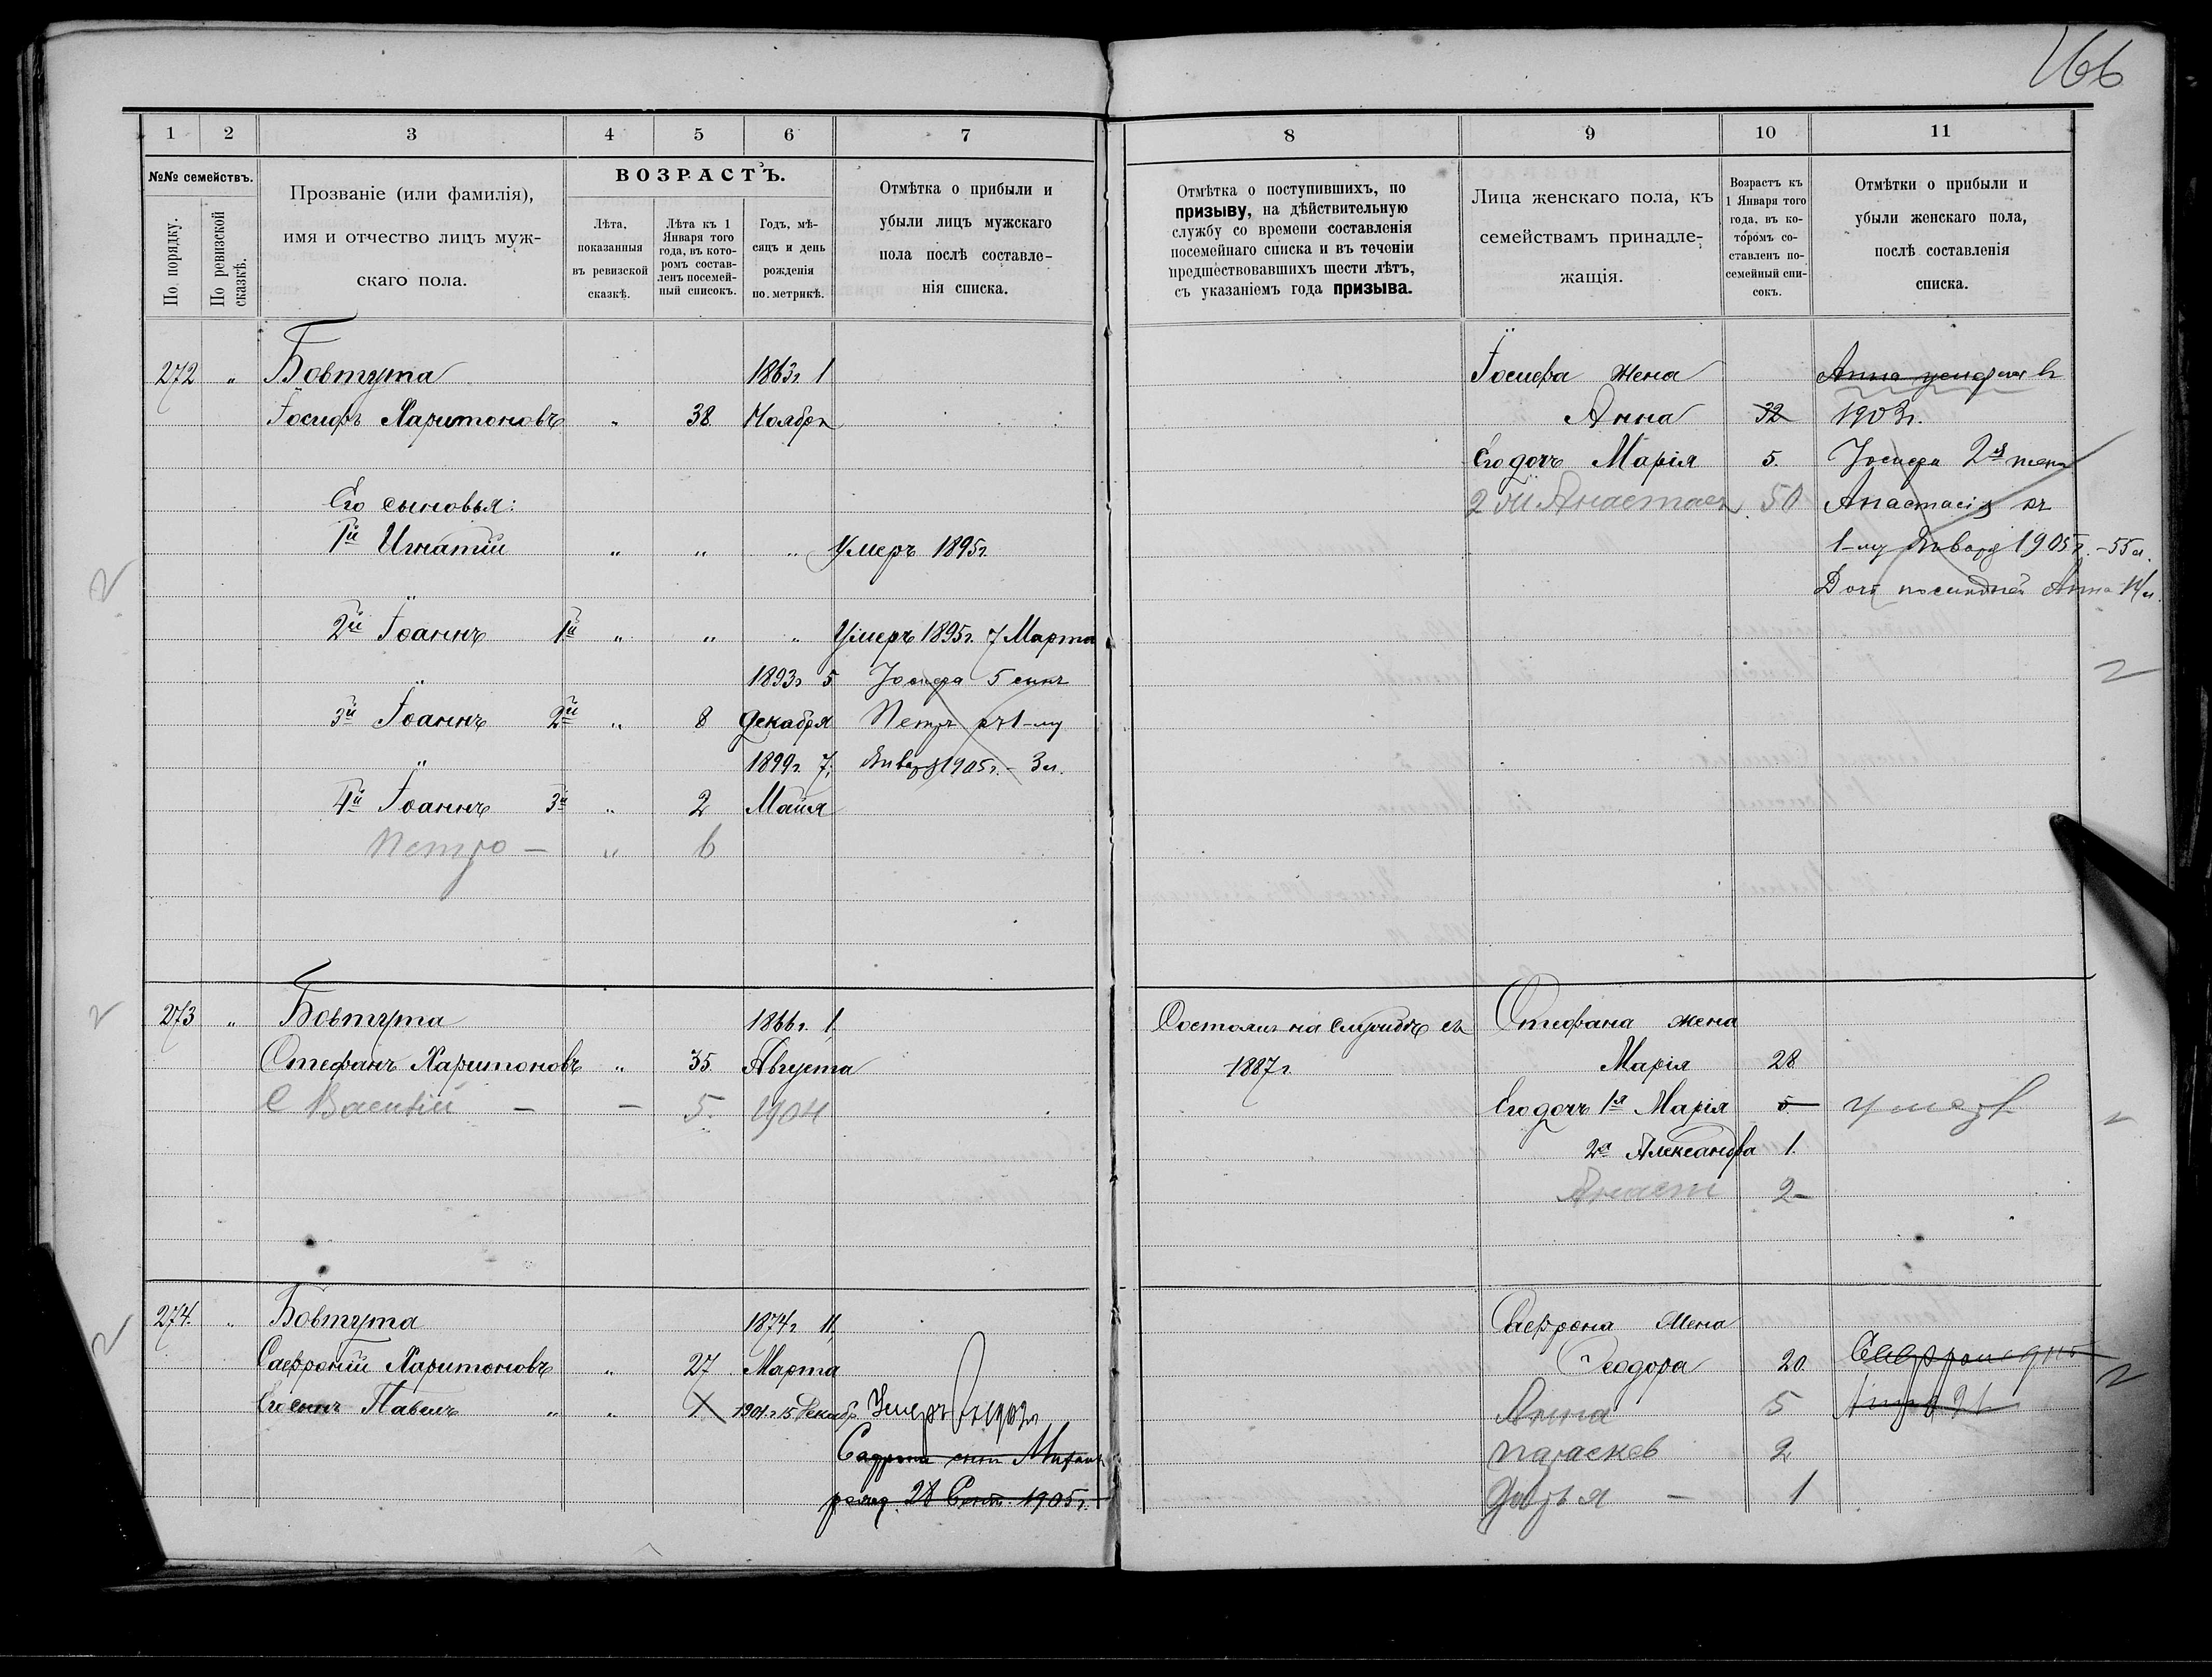 166
1 2 3 4 5 6 7 8 9 10 11
№№ семействъ.
По порядку.
По ревизской сказкѣ.
Прозваніе (или фамилія),
имя и отчество лицъ муж-
скаго пола.
ВОЗРАСТЪ.
Лѣта,
показанныя
въ ревизской
сказкѣ.
Лѣта къ 1
Января того
года, въ кото-
ромъ состав-
ленъ посемей-
ный списокъ.
Годъ, мѣ-
сяцъ и день
рожденія
по метрикѣ.
Отмѣтка о прибыли и
убыли лицъ мужскаго
пола послѣ составле-
нія списка.
Отмѣтка о поступившихъ, по
призыву, на дѣйствительную
службу со времени составленія
посемейнаго списка и въ теченіи
предшествовавшихъ шести лѣтъ,
съ указаніемъ года призыва.
Лица женскаго пола, къ
семействамъ принадле-
жащія.
Возрастъ къ
1 Января того
года, въ ко-
торомъ со-
ставленъ по-
семейный спи-
сокъ.
Отмѣтки о прибыли и
убыли женскаго пола,
послѣ составленія
списка.
272 " Бовтута 1863г. 1
Іосифъ Харитоновъ " 38 Ноября
Его сыновья:
1й Игнатій " " " Умеръ 1895г.
2й Іоаннъ 1й " " " Умеръ 1895г. 7 Марта
1893г. 5 Іосифа 5 сынъ
3й Іоаннъ 2й " 8 Декабря Петръ къ 1-му
1899г. 7 Января 1905г. - 3 л.
4й Іоаннъ 3й " 2 Маія
Петро - " 6
Іосифа жена Анна
Анна 32 1903г.
Его дочь Марія 5. Іосифа 2я жена
2 Ж Анастас 50 Анастасія къ
1-му Января 1905г. - 55 л.
Дочь последней Анна 14 л.
273 " Бовтута 1866г. 1
Стефанъ Харитоновъ " 35 Августа
С Василій - - 5. 1904
Состоялъ на службѣ съ
1887г.
Стефана жена
Марія 28
Его дочь 1я Марія 5 умерл
2я Александра 1.
Анаст 2-
274. " Бовтута 1874г. 11
Сафроній Харитоновъ " 27 Марта
Его сынъ Павелъ " " 1 1901г. 15 Декабр. Умеръ
Сафрона сынъ Михаилъ
рожд. 28 Сент. 1905г.
Сафрона жена
Феодора 20
Анна 5
Параскев 2
Дарья - 1